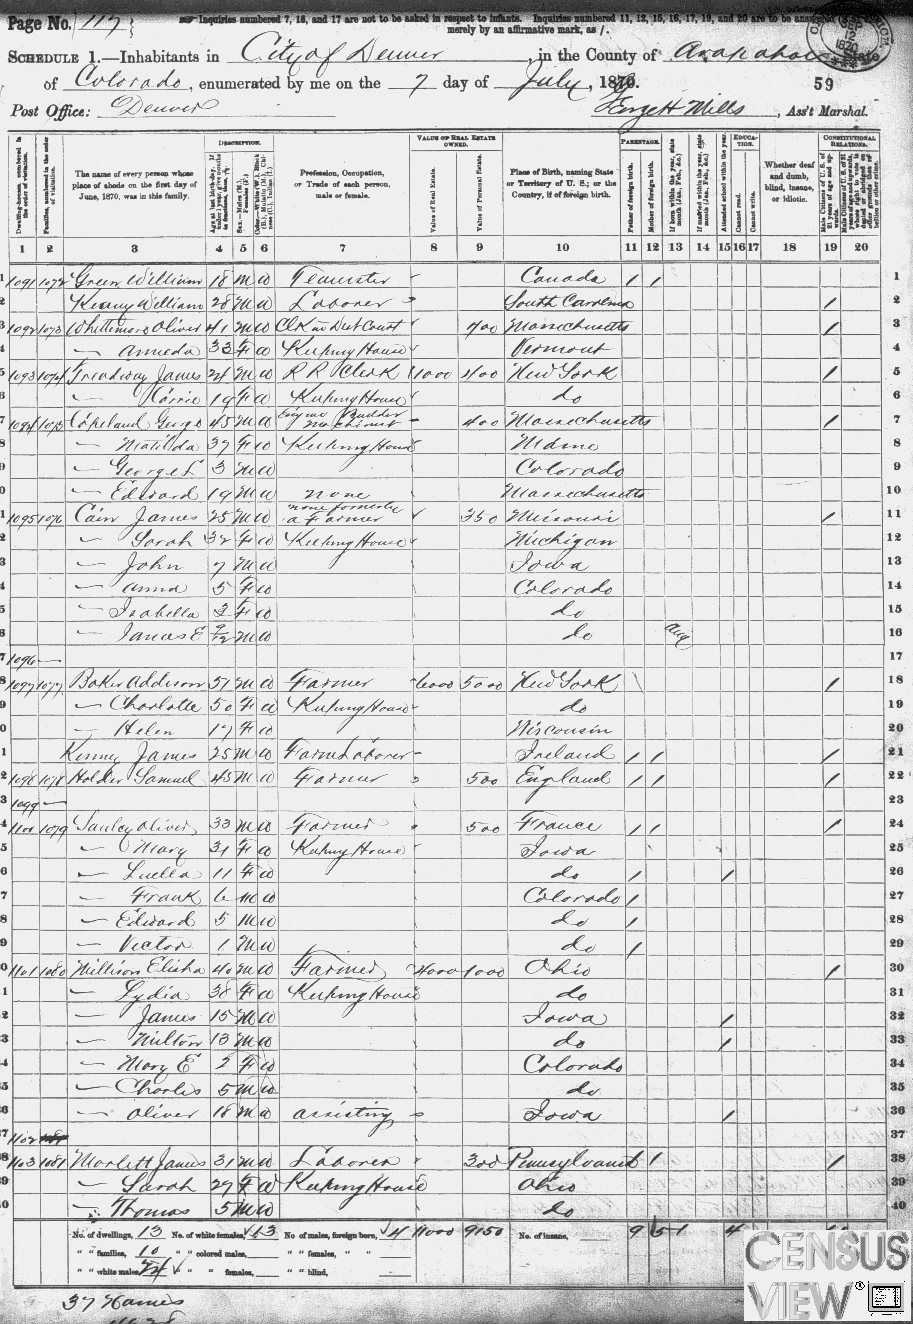 Page No. 117
Inquiries numbered 7, 16, and 17 are not to be asked in respect to infants. Inquiries numbered 11, 12, 15, 16, 17, 19, and 20 are to be answered
merely by an affirmative mark, as /.
SCHEDULE 1.—Inhabitants in City of Denver, in the County of Arapahoe, State
of Colorado, enumerated by me on the 7 day of July, 1870.
59
Post Office: Denver
Mills, Ass't Marshal.
DESCRIPTION. VALUE OF REAL ESTATE OWNED. PARENTAGE. EDUCATION. CONSTITUTIONAL RELATIONS.
Dwelling-houses, numbered in the order of visitation.
Families, numbered in the order of visitation.
The name of every person whose place of abode on the first day of June, 1870, was in this family.
Profession, Occupation, or Trade of each person, male or female.
Value of Real Estate.
Value of Personal Estate.
Place of Birth, naming State or Territory of U. S.; or the Country, if of foreign birth.
Father of foreign birth.
Mother of foreign birth.
If born within the year, state month (Jan., Feb., &c.)
If married within the year, state month (Jan., Feb., &c.)
Attended school within the year.
Cannot read.
Cannot write.
Whether deaf and dumb, blind, insane, or idiotic.
1 2 3 4 5 6 7 8 9 10 11 12 13 14 15 16 17 18 19 20
1 1091 1072 Green William 18 M W Teamster Canada / / 1
2 William 28 M W Laborer South Carolina / 2
3 1092 1073 Whittimore Oliver 41 M W Clk in Dist Court 400 Massachusetts / 3
4 — 33 F W Keeping House Vermont 4
5 1093 1074 Treadway James 24 M W R R Clerk 1000 400 New York / 5
6 — Carrie 19 F W Keeping House do 6
7 1094 1075 Copeland George 45 M W Engine Builder Machinist 400 Massachusetts / 7
8 — Matilda 37 F W Keeping House Maine 8
9 — George L 3 M W Colorado 9
0 — Edward 19 M W none Massachusetts 10
1 1095 1076 Cain James 25 M W none formerly a Farmer 350 Missouri / 11
2 — Sarah 32 F W Keeping House Michigan 12
3 — John 7 M W Iowa 13
4 — Anna 5 F W Colorado 14
5 — Isabella 3 F W do 15
6 — James E 9/12 M W do Aug 16
7 1096 — 17
8 1097 1077 Baker Addison 51 M W Farmer 6000 5000 New York / 18
9 — Charlotte 50 F W Keeping House do 19
0 — Helen 17 F W Wisconsin 20
1 Kinney James 25 M W Farm Laborer Ireland / / / 21
2 1098 1078 Holder Samuel 45 M W Farmer 500 England / / / 22
3 1099 — 23
4 1100 1079 Oliver 33 M W Farmer 500 France / / / 24
5 — Mary 31 F W Keeping House Iowa 25
6 — Luella 11 F W do / / 26
7 — Frank 6 M W Colorado / 27
8 — Edward 5 M W do / 28
9 — Victor 1 M W do / 29
0 1101 1080 Millison Elisha 40 M W Farmer 4000 1000 Ohio / 30
1 — Lydia 38 F W Keeping House do 31
2 — James 15 M W Iowa / 32
3 — Milton 13 M W do / 33
4 — Mary E 2 F W Colorado 34
5 — Charles 5 M W do 35
6 — Oliver 18 M W assisting Iowa / 36
7 1102 37
8 1103 1081 Marlett James 31 M W Laborer 300 Pennsylvania / / 38
9 — Sarah 27 F W Keeping House Ohio 39
0 — Thomas 5 M W do 40
No. of dwellings, 13 No. of white females, 13 No. of males, foreign born, 4 11000 9150 No. of insane, 9 5 1 4
" " families, 10 " " colored males, " " females, " "
" " white males, 24 " " females, " " blind,
37 Names
CENSUS
VIEW